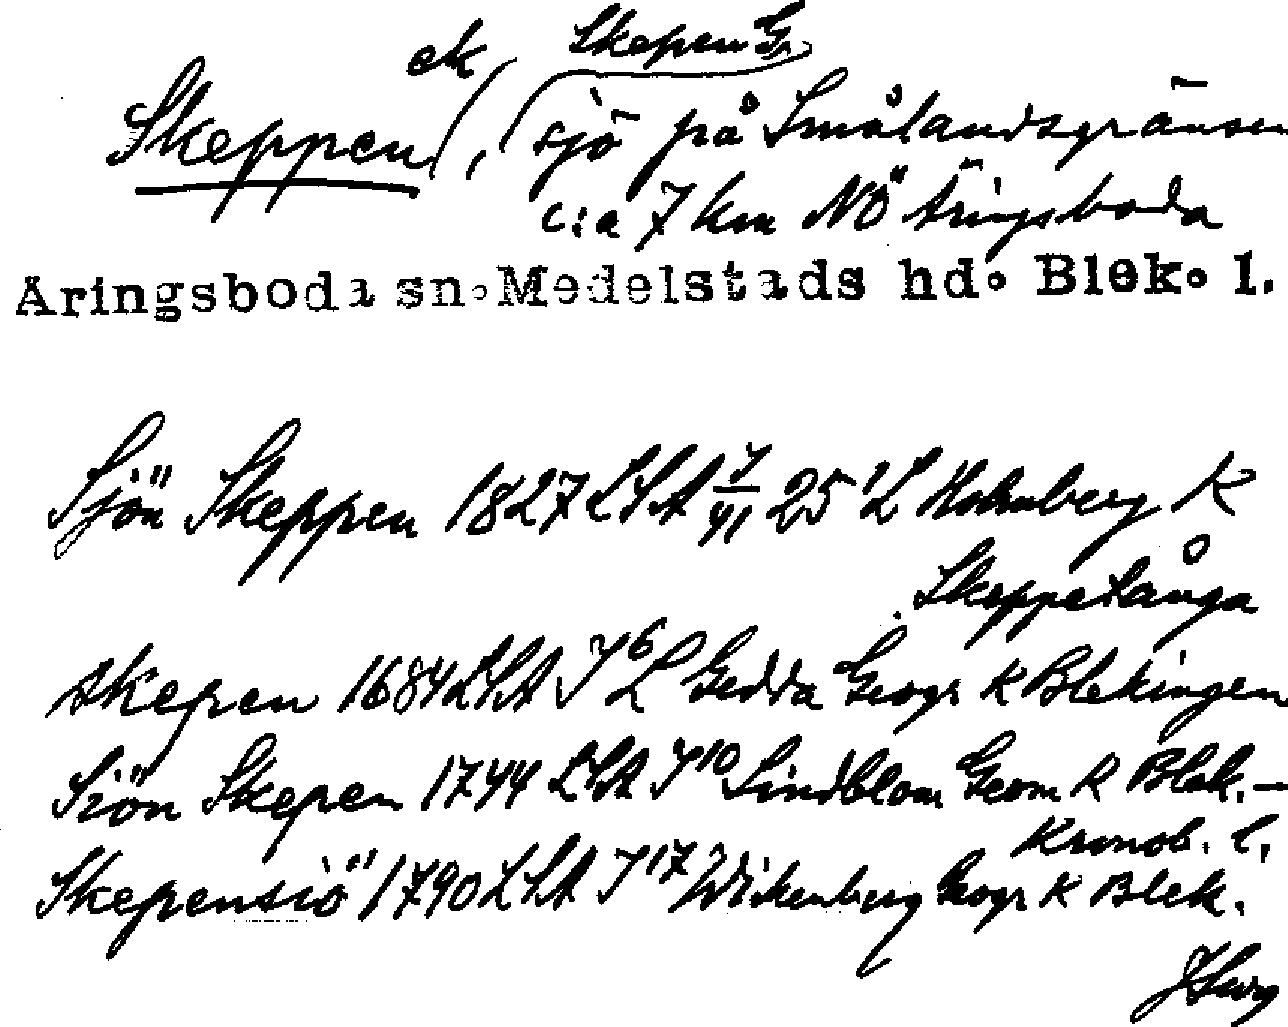 Skeppen ek (, Skepen G.
sjö på Smålandsgränsen
c:a 7 km NÖ Äringsboda
Äringsboda sn. Medelstads hd. Blek. l.
Sjön Skeppen 1827 LSA 25 L Holmberg K
Skeppetånga
Skepen 1684 LSA I 6 L Gedda Geogr K Blekingen
Siön Skepen 1744 LSA I 10 Lindblom Geom K Blek.–
Kronob. l.
Skepensiö 1790 LSA I 17 Wikenberg Geogr K Blek.